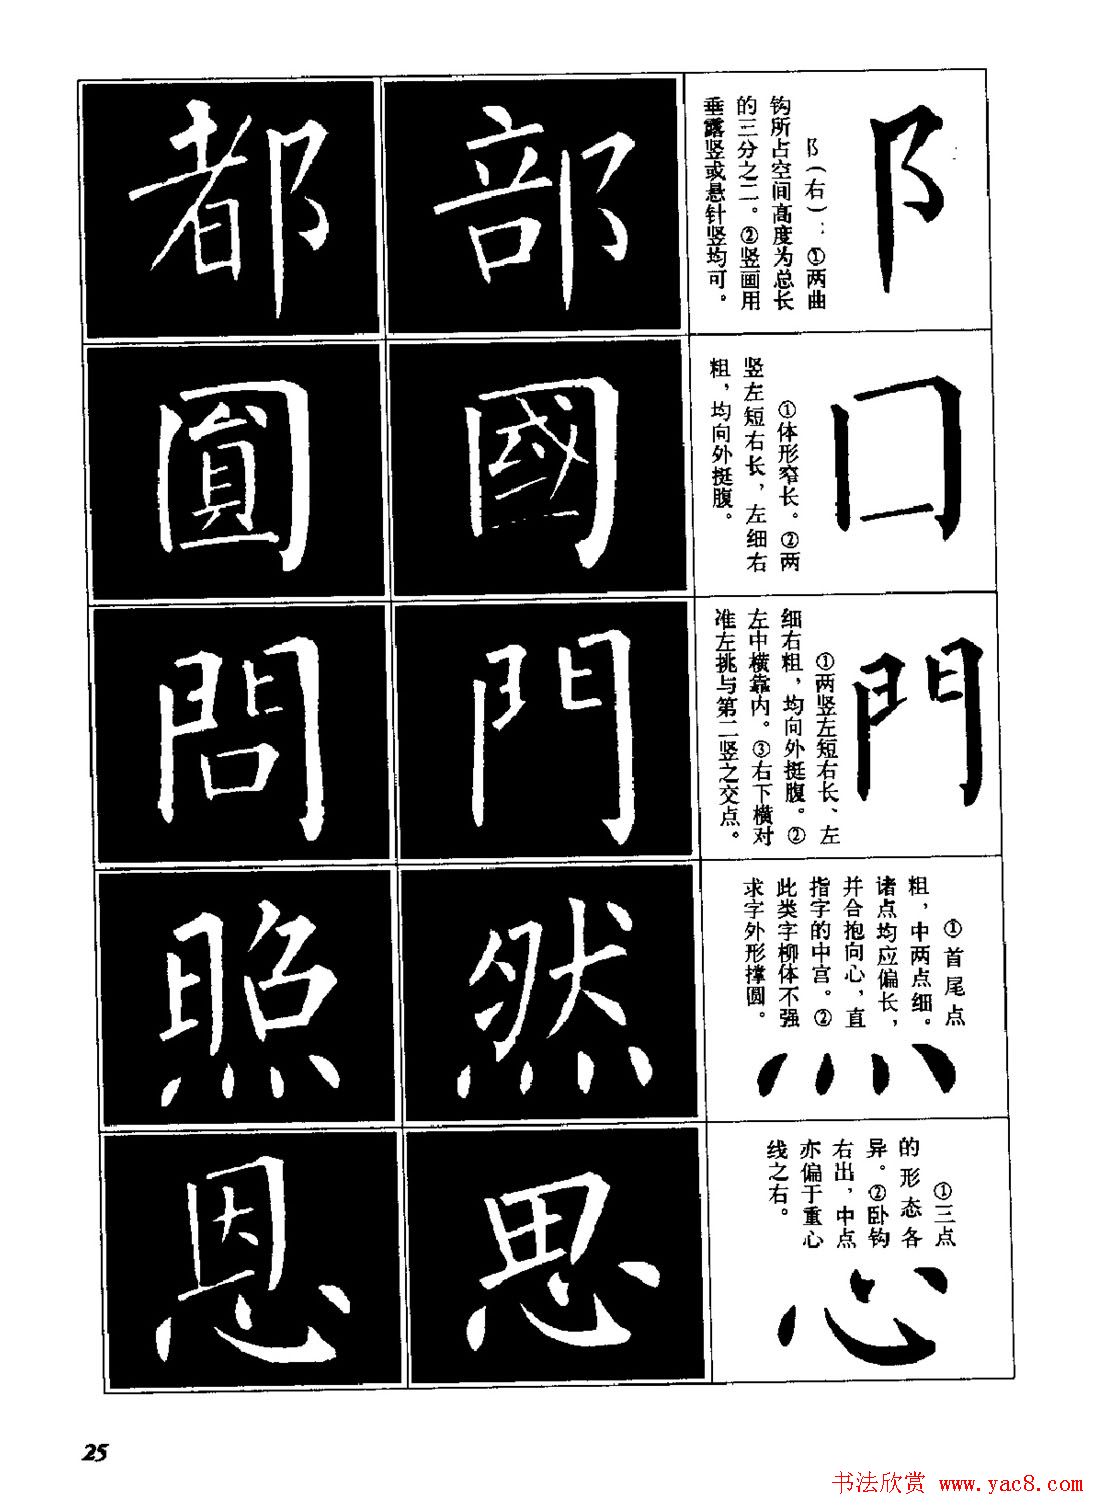 阝
阝(右):①两曲
钩所占空间高度为总长
的三分之二。②竖画用
垂露竖或悬针竖均可。
部
都
囗
①体形窄长。②两
竖左短右长,左细右
粗,均向外挺腹。
國
圓
門
①两竖左短右长、左
细右粗,均向外挺腹。②
左中横靠内。③右下横对
准左挑与第二竖之交点。
門
問
灬
①首尾点
粗,中两点细。
诸点均应偏长,
并合抱向心,直
指字的中宫。②
此类字柳体不强
求字外形撑圆。
然
照
心
①三点
的形态各
异。②卧钩
右出,中点
亦偏于重心
线之右。
思
恩
25
书法欣赏 www.yac8.com